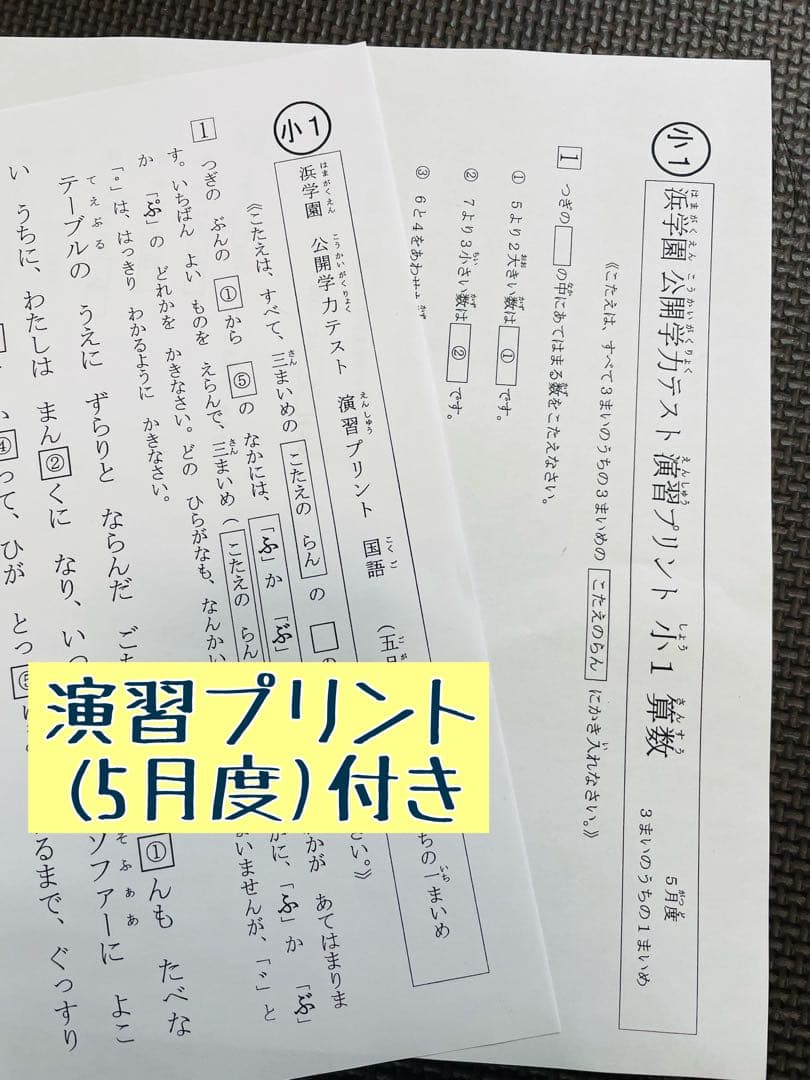 小1
浜学園 公開学力テスト 演習プリント 小1 算数
はまがくえん こうかいがくりょく えんしゅう しょう さんすう
5月度
がつど
3まいのうちの1まいめ
《こたえは、すべて3まいのうちの3まいめの こたえのらん にかき入れなさい。》
1 つぎの □ の中にあてはまる数をこたえなさい。
① 5より2大きい数は ① です。
② 7より3小さい数は ② です。
③ 6と4をあわせ
小1
浜学園 公開学力テスト 演習プリント 国語
はまがくえん こうかいがくりょく えんしゅう こくご
(五
ちの 一まいめ
《こたえは、すべて、三まいめの こたえの らん の □ の
さい。》
1 つぎの ぶんの ① から ⑤ の なかには、「ふ」か 「ぶ」
かが あてはまりま
す。いちばん よい ものを えらんで、三まいめ( こたえの らん
に、「ふ」か 「ぶ」
か 「ぷ」の どれかを かきなさい。どの ひらがなも、なんかい
いませんが、「゛」と
「゜」は、はっきり わかるように かきなさい。
てえぶる
テーブルの うえに ずらりと ならんだ ごち
①んも たべな
い うちに、わたしは まん②くに なり、いつ
そふぁあ
ソファーに よこ
④って、ひが とっ⑤
るまで、ぐっすり
演習プリント
(5月度)付き